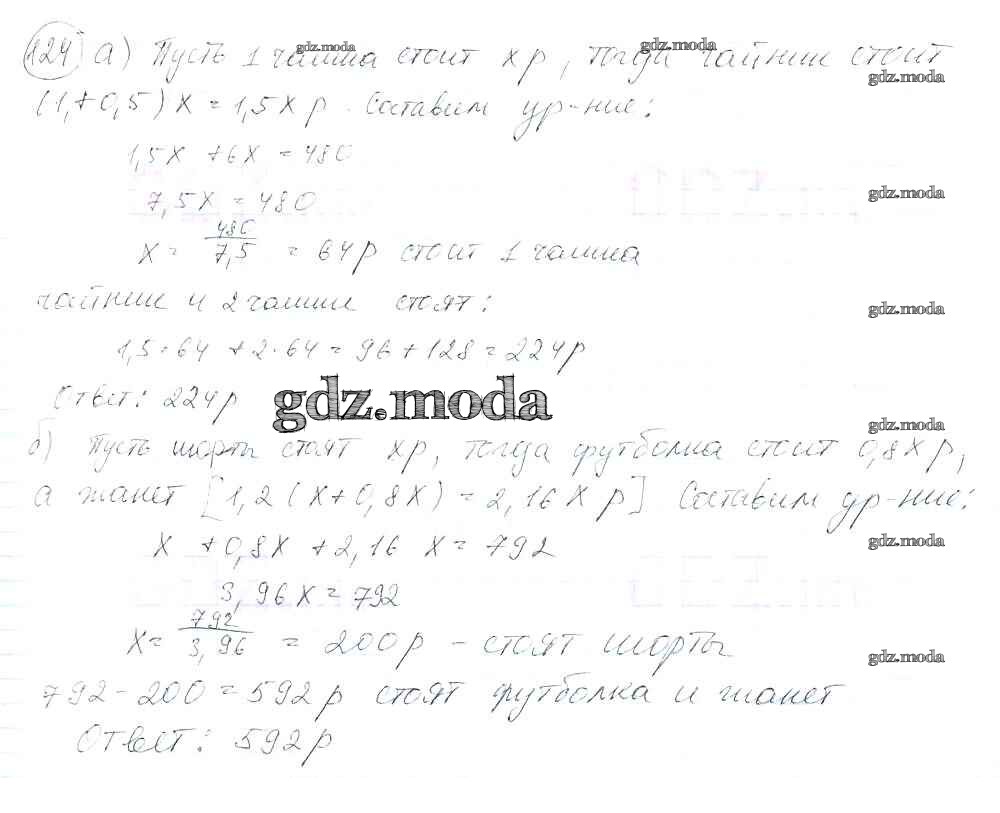 124 а) Пусть 1 чашка стоит x р, тогда чайник стоит
(1+0,5)x = 1,5x р. Составим ур-ние:
1,5x + 6x = 480
7,5x = 480
x = 480/7,5 = 64 р стоит 1 чашка
чайник и 2 чашки стоят:
1,5·64 + 2·64 = 96 + 128 = 224 р
Ответ: 224 р
gdz.moda
б) Пусть шорты стоят xр, тогда футболка стоит 0,8x р,
а жакет [1,2(x+0,8x) = 2,16x р] Составим ур-ние:
x + 0,8x + 2,16 x = 792
3,96x = 792
x = 792/3,96 = 200 р - стоят шорты
792 - 200 = 592 р стоят футболка и жакет
Ответ: 592 р
gdz.moda
gdz.moda
gdz.moda
gdz.moda
gdz.moda
gdz.moda
gdz.moda
gdz.moda